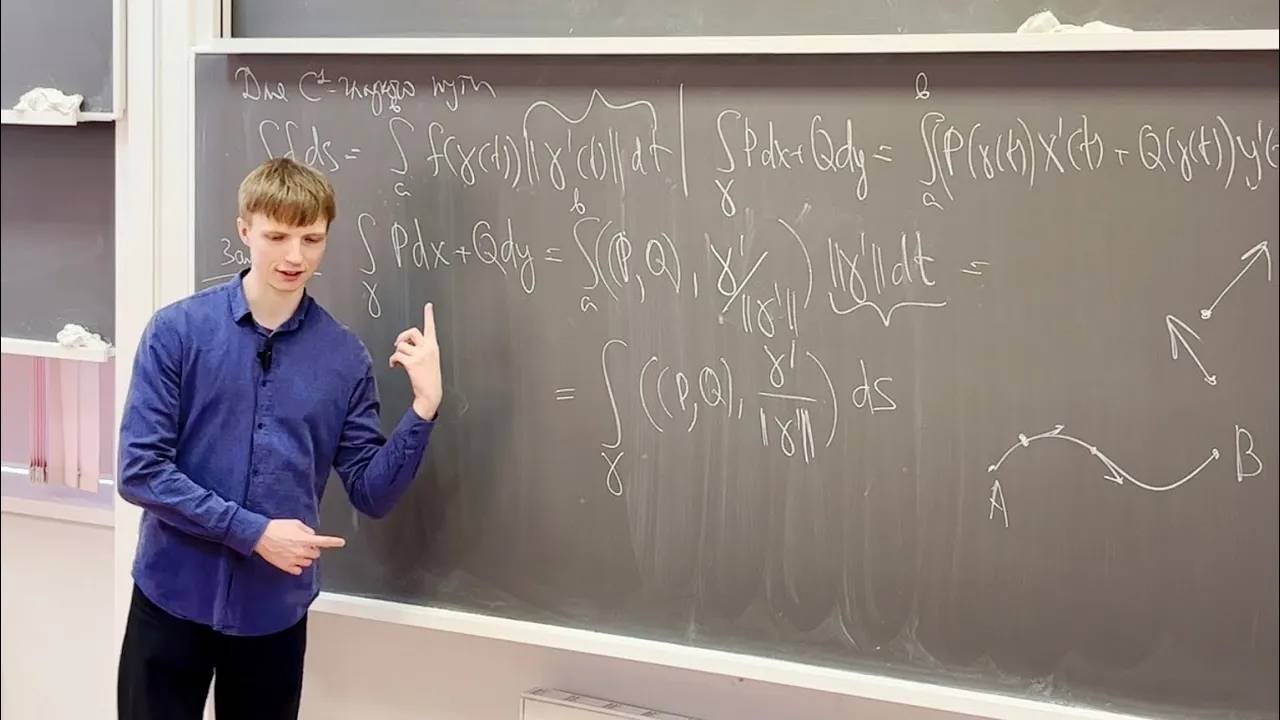 Для C¹-гладкого пути
∫_γ f ds = ∫_a^b f(γ(t)) ||γ'(t)|| dt | ∫_γ Pdx + Qdy = ∫_a^b (P(γ(t)) x'(t) + Q(γ(t)) y'(
Зам ∫_γ Pdx + Qdy = ∫_a^b ((P, Q), γ'/||γ'||) ||γ'|| dt =
= ∫_γ ((P, Q), γ'/||γ'||) ds
A
B